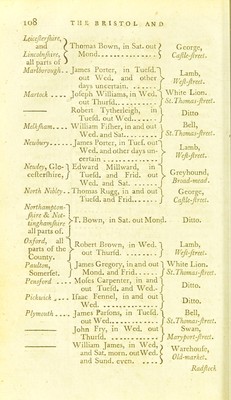 108 THE BRISTOL AND
Leicestershire,
and
Lincolnshire,
all parts of
Thomas Bown, in Sat. out
Mond.
George,
Castle-street.
Marlborough.. James Porter, in Tuesd.
out Wed. and other
days uncertain.
Lamb,
West-street.
Martock .... Joseph Williams, in Wed.
out Thursd.
White Lion.
St.Thomas-street.
Robert Tytherleigh, in
Tuesd. out Wed.
Ditto
Melksham.... William Fisher, in and out
Wed. and Sat.
Bell,
St.Thomas-street.
Newbury...... James Porter, in Tuesd. out
Wed. and other days un-
certain
Lamb,
West-street.
Newley, Glo-
cestershire,
Edward Millward, in
Tuesd. and Frid. out
Wed. and Sat.
Greyhound,
Broad-mead.
North Nibley.. Thomas Rugg, in and out
Tuesd. and Frid.
George,
Castle-street.
Northampton-
shire & Not-
tinghamshire
all parts of.
T. Bown, in Sat. out Mond.
Ditto.
Oxford, all
parts of the
County.
Robert Brown, in Wed.
out Thursd.
Lamb,
West-street.
Paulton,
Somerset.
James Gregory, in and out
Mond. and Frid.
White Lion.
St.Thomas-street.
Pensford .... Moses Carpenter, in and
out Tuesd. and Wed.
Ditto.
Pickwick .... Isaac Fennel, in and out
Wed.
Ditto.
Plymouth .... James Parsons, in Tuesd.
out Wed.
Bell,
St.Thomas-street.
John Fry, in Wed. out
Thursd.
Swan,
Maryport-street.
William James, in Wed.
and Sat. morn. out Wed.
and Sund. even.
Warehouse,
Old-market.
Radstock